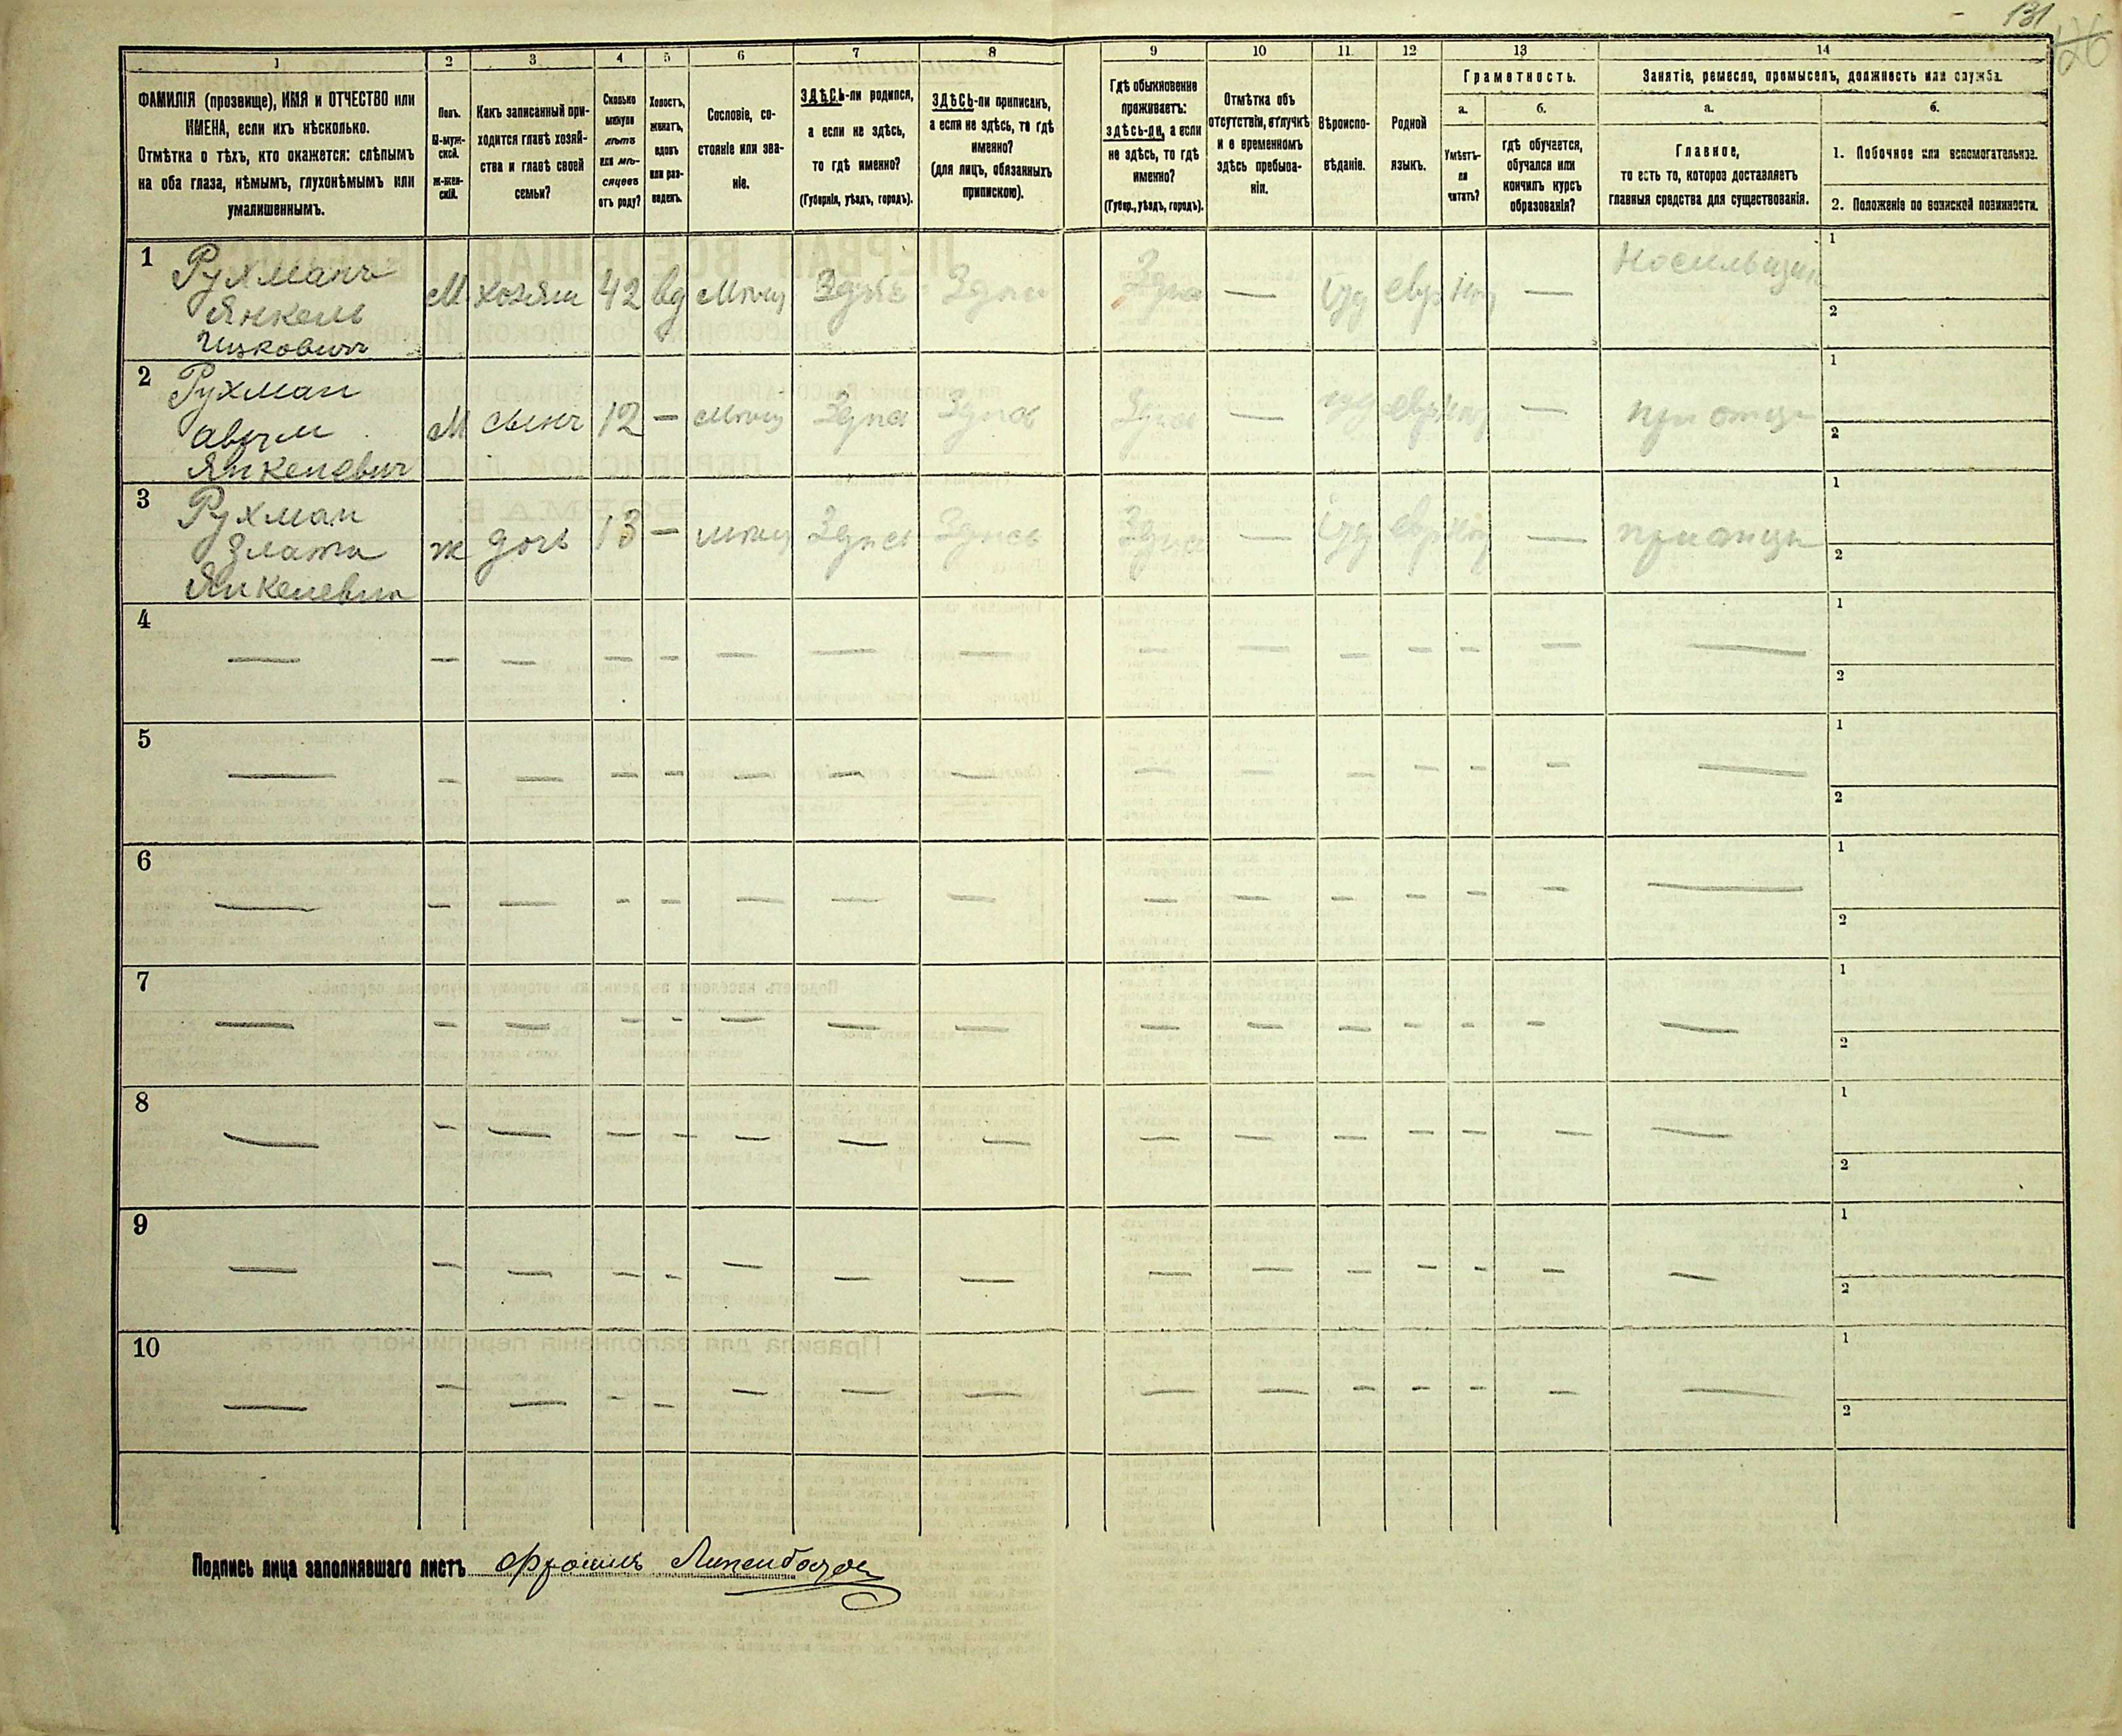 131
126
1
2
3
4
5
6
7
8
9
10
11.
12
13
14
ФАМИЛІЯ (прозвище), ИМЯ и ОТЧЕСТВО или
ИМЕНА, если ихъ нѣсколько.
Отмѣтка о тѣхъ, кто окажется: слѣпымъ
на оба глаза, нѣмымъ, глухонѣмымъ или
умалишеннымъ.
Полъ.
М-муж-
ской.
ж-жен-
скій.
Какъ записанный при-
ходится главѣ хозяй-
ства и главѣ своей
семьи?
Сколько
минуло
лѣтъ
или мѣ-
сяцевъ
отъ роду?
Холостъ,
женатъ,
вдовъ
или раз-
веденъ.
Сословіе, со-
стояніе или зва-
ніе.
ЗДѢСЬ-ли родился,
а если не здѣсь,
то гдѣ именно?
(Губернія, уѣздъ, городъ).
ЗДѢСЬ-ли приписан,
а если не здѣсь, то гдѣ
именно?
(для лицъ, обязанныхъ
припискою).
Гдѣ обыкновенно
проживаетъ:
здѣсь-ли, а если
не здѣсь, то гдѣ
именно?
(Губер., уѣздъ, городъ).
Отмѣтка объ
отсутствіи, отлучкѣ
и о временномъ
здѣсь пребыва-
ніи.
Вѣроиспо-
вѣданіе.
Родной
языкъ.
Грамотность.
а.
б.
Умѣетъ-
ли
читать?
гдѣ обучается,
обучался или
кончилъ курсъ
образованія?
Занятіе, ремесло, промыселъ, должность или служба.
а.
б.
Главное,
то есть то, которое доставляетъ
главныя средства для существованія.
1. Побочное или вспомогательное.
2. Положеніе по воинской повинности.
1
Рухманъ
Янкель
Ицковичъ
М хозяин 42 вд Мѣщ Здѣсь Здѣсь Здѣсь — Іуд евр нѣт — Носильщик
1
2
2
Рухман
Аврум
Янкелевич
М сынъ 12 — Мѣщ Здѣсь Здѣсь Здѣсь — іуд евр нѣт — при отцѣ
1
2
3
Рухман
Злата
Янкелевна
ж дочь 13 — мѣщ Здѣсь Здѣсь Здѣсь — Іуд евр нѣт — при отцѣ
1
2
4
— — — — — — — — — — — — — — —
1
2
5
— — — — — — — — — — — — — — —
1
2
6
— — — — — — — — — — — — — — —
1
2
7
— — — — — — — — — — — — — — —
1
2
8
— — — — — — — — — — — — — — —
1
2
9
— — — — — — — — — — — — — — —
1
2
10
— — — — — — — — — — — — — — —
1
2
Подпись лица заполнявшаго листъ